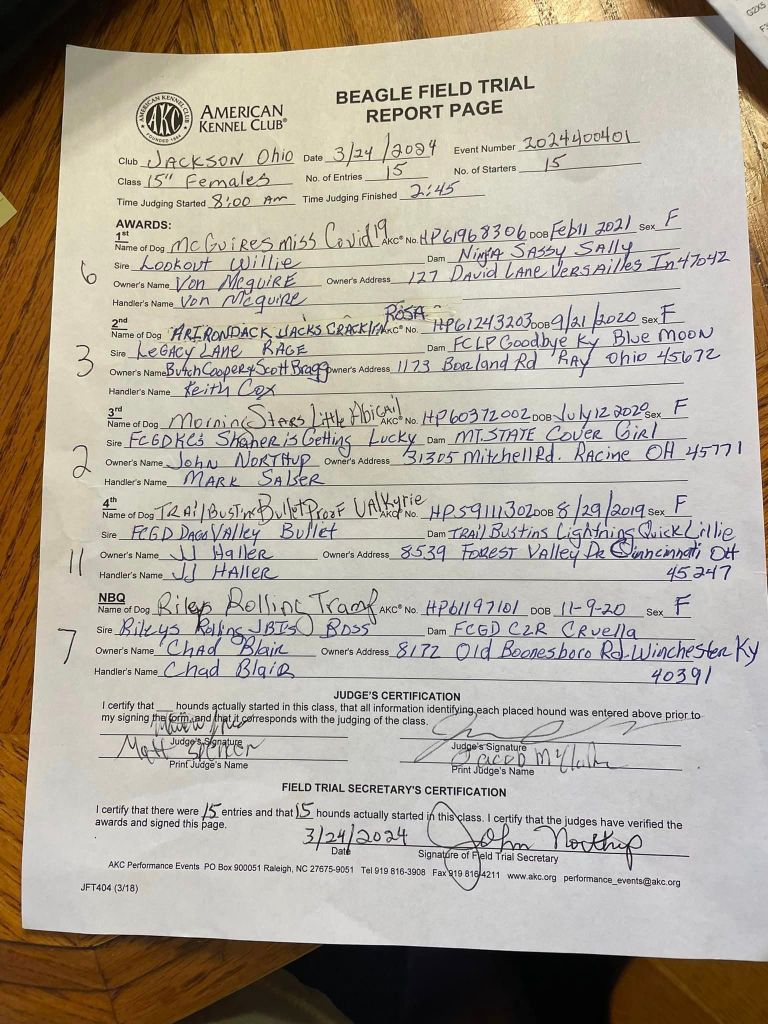 BEAGLE FIELD TRIAL
REPORT PAGE
AMERICAN KENNEL CLUB
AKC
FOUNDED 1884
AMERICAN
KENNEL CLUB®
Club JACKSON Ohio Date 3/24/2024 Event Number 2024400401
Class 15" Females No. of Entries 15 No. of Starters 15
Time Judging Started 8:00 Am Time Judging Finished 2:45
AWARDS:
1st
Name of Dog McGuires miss Covid 19 AKC® No. HP61968306 DOB Feb 11 2021 Sex F
Sire Lookout Willie Dam Ninja Sassy Sally
6
Owner's Name Von McguirE Owner's Address 127 David Lane Versailles In 47042
Handler's Name Von Mcguire
ROSA
2nd
Name of Dog ARIRONDACK JACKS CRACKLIN AKC® No. HP61243203 DOB 9/21/2020 Sex F
Sire LeGACY LANE RAGE Dam FCLP Goodbye Ky Blue Moon
3
Owner's Name Butch Cooper & Scott Bragg Owner's Address 1173 Borland Rd RAY Ohio 45672
Handler's Name Keith Cox
3rd
Name of Dog Morning Stars Little Abigail AKC® No. HP60372002 DOB July 12 2020 Sex F
Sire FCGDKCs Shaher is Getting Lucky Dam MT. STATE Cover Girl
2
Owner's Name John Northup Owner's Address 31305 Mitchell Rd. Racine OH 45771
Handler's Name MARK SALSER
4th
Name of Dog TRAIL Bustins Bullet Proof VAlkyrie AKC® No. HP59111302 DOB 8/29/2019 Sex F
Sire FCGD Dago Valley Bullet Dam TRAIL Bustins Lightning Quick Lillie
11
Owner's Name JJ Haller Owner's Address 8539 FOREST VAlley Dr Cinncinnati OH
Handler's Name JJ HALLER 45247
NBQ
Name of Dog Rileys Rolling Tramp AKC® No. HP61197101 DOB 11-9-20 Sex F
Sire Rileys Rolling JBIS BOSS Dam FCGD C2R CRuella
7
Owner's Name CHAD Blair Owner's Address 8172 Old Boonesboro Rd. Winchester Ky
Handler's Name Chad Blair 40391
JUDGE'S CERTIFICATION
I certify that hounds actually started in this class, that all information identifying each placed hound was entered above prior to
my signing the form, and that it corresponds with the judging of the class.
Judge's Signature Judge's Signature
Matt Jacob
Print Judge's Name Print Judge's Name
FIELD TRIAL SECRETARY'S CERTIFICATION
I certify that there were 15 entries and that 15 hounds actually started in this class. I certify that the judges have verified the
awards and signed this page.
3/24/2024 John Northup
Date Signature of Field Trial Secretary
AKC Performance Events PO Box 900051 Raleigh, NC 27675-9051 Tel 919 816-3908 Fax 919 816-4211 www.akc.org performance_events@akc.org
JFT404 (3/18)